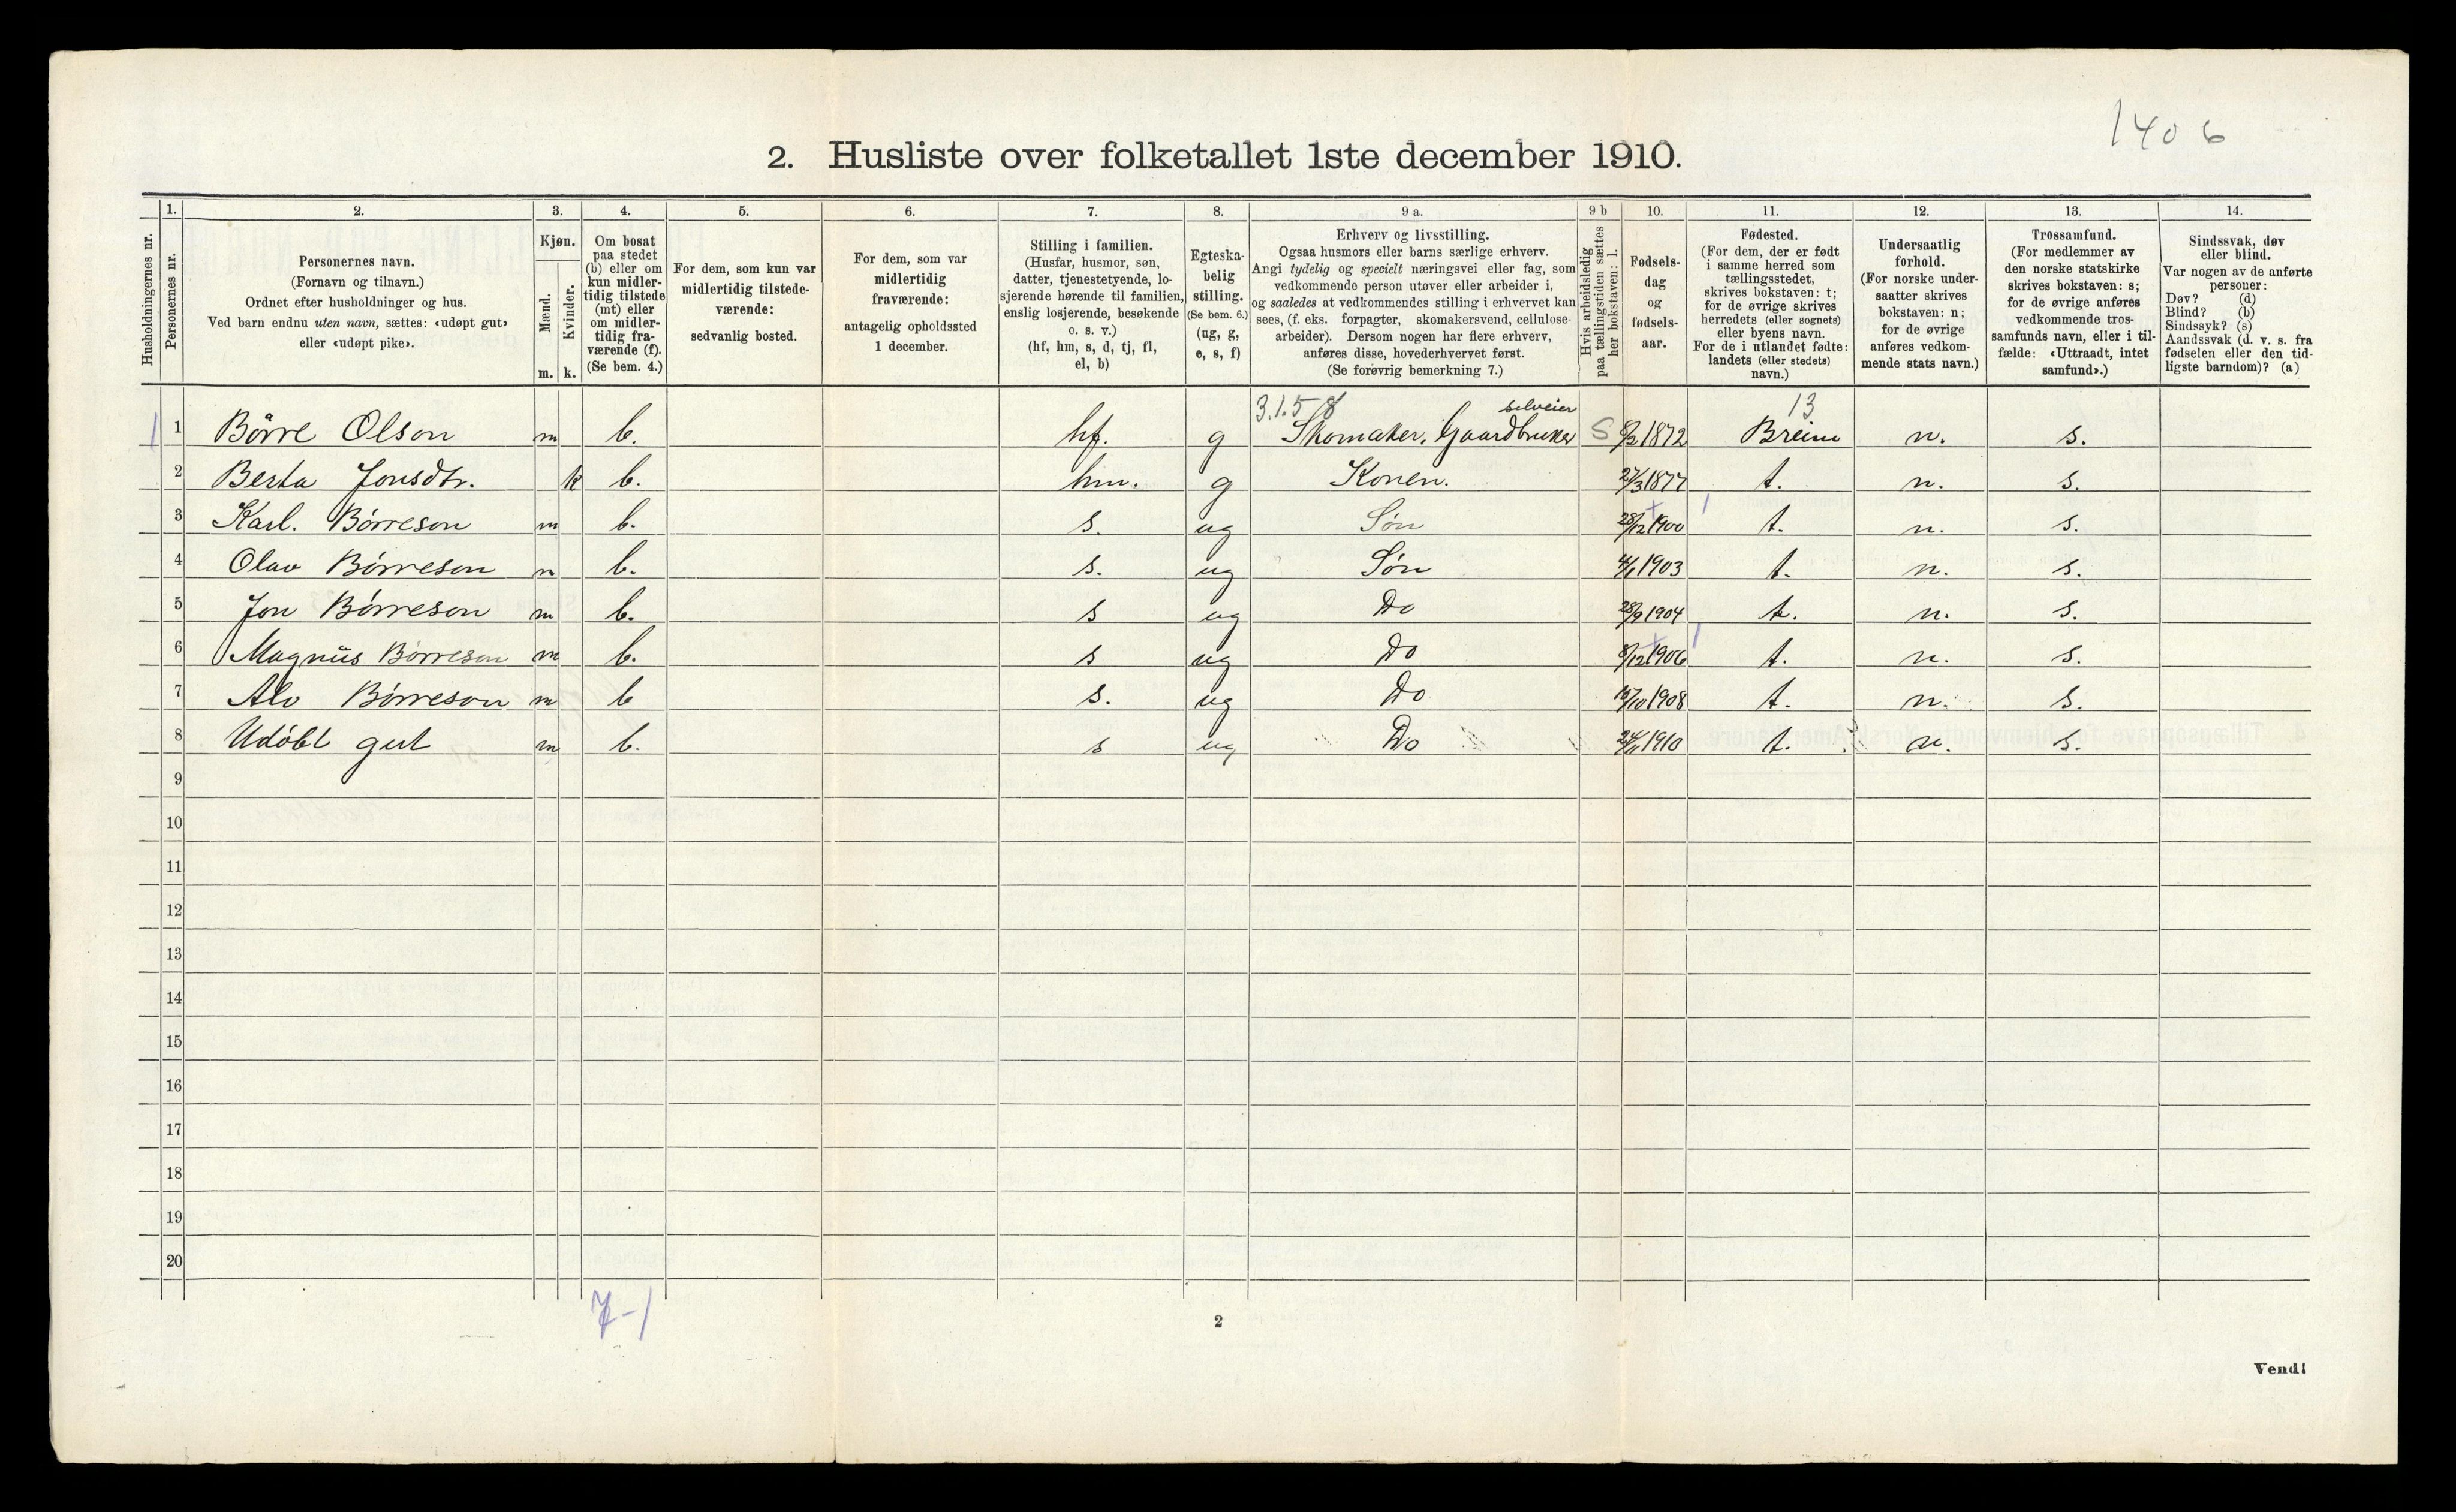 1406
2. Husliste over folketallet 1ste december 1910.
Husholdningernes nr.
1. Personernes nr.
2. Personernes navn. (Fornavn og tilnavn.) Ordnet efter husholdninger og hus. Ved barn endnu uten navn, sættes: «udøpt gut» eller «udøpt pike».
3. Kjøn. Mænd. m. Kvinder. k.
4. Om bosat paa stedet (b) eller om kun midlertidig tilstede (mt) eller om midlertidig fraværende (f). (Se bem. 4.)
5. For dem, som kun var midlertidig tilstedeværende: sedvanlig bosted.
6. For dem, som var midlertidig fraværende: antagelig opholdssted 1 december.
7. Stilling i familien. (Husfar, husmor, søn, datter, tjenestetyende, losjerende hørende til familien, enslig losjerende, besøkende o. s. v.) (hf, hm, s, d, tj, fl, el, b)
8. Egteskabelig stilling. (Se bem. 6.) (ug, g, e, s, f)
9 a. Erhverv og livsstilling. Ogsaa husmors eller barns særlige erhverv. Angi tydelig og specielt næringsvei eller fag, som vedkommende person utøver eller arbeider i, og saaledes at vedkommendes stilling i erhvervet kan sees, (f. eks. forpagter, skomakersvend, cellulosearbeider). Dersom nogen har flere erhverv, anføres disse, hovederhvervet først. (Se forøvrig bemerkning 7.)
9 b Hvis arbeidsledig paa tællingstiden sættes her bokstaven: l.
10. Fødselsdag og fødselsaar.
11. Fødested. (For dem, der er født i samme herred som tællingsstedet, skrives bokstaven: t; for de øvrige skrives herredets (eller sognets) eller byens navn. For de i utlandet fødte: landets (eller stedets) navn.)
12. Undersaatlig forhold. (For norske undersaatter skrives bokstaven: n; for de øvrige anføres vedkommende stats navn.)
13. Trossamfund. (For medlemmer av den norske statskirke skrives bokstaven: s; for de øvrige anføres vedkommende trossamfunds navn, eller i tilfælde: «Uttraadt, intet samfund».)
14. Sindssvak, døv eller blind. Var nogen av de anførte personer: Døv? (d) Blind? (b) Sindssyk? (s) Aandssvak (d. v. s. fra fødselen eller den tidligste barndom)? (a)
3.1.5 8 selveier 13
1 1 Börre Olson m b. hf. g Skomaker, Gaardbruker S 8/2 1872 Breim n. s.
2 Berta Jonsdtr. k b. hm. g Konen. 27/3 1877 t. n. s.
3 Karl. Børreson m b. s. ug Søn 28/12 1900 t. n. s.
4 Olav Børreson m b. s. ug Søn 4/1 1903 t. n. s.
5 Jon Børreson m b. s ug Do 28/9 1904 t. n. s.
6 Magnus Børreson m b. s ug Do 8/12 1906 t. n. s.
7 Alv Børreson m b s. ug Do 15/10 1908 t. n. s.
8 Udöbt gut m b. s ug Do 24/11 1910 t. n. s.
9
10
11
12
13
14
15
16
17
18
19
20
7-1
2
Vend!